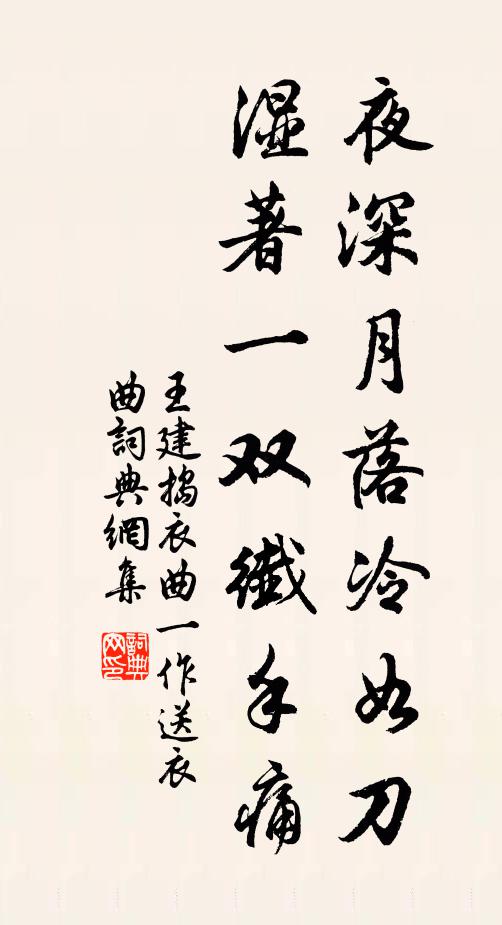 夜深月落冷如刀
湿著一双纖手痛
王建搗衣曲一作送衣
曲詞典網集
詞典网印